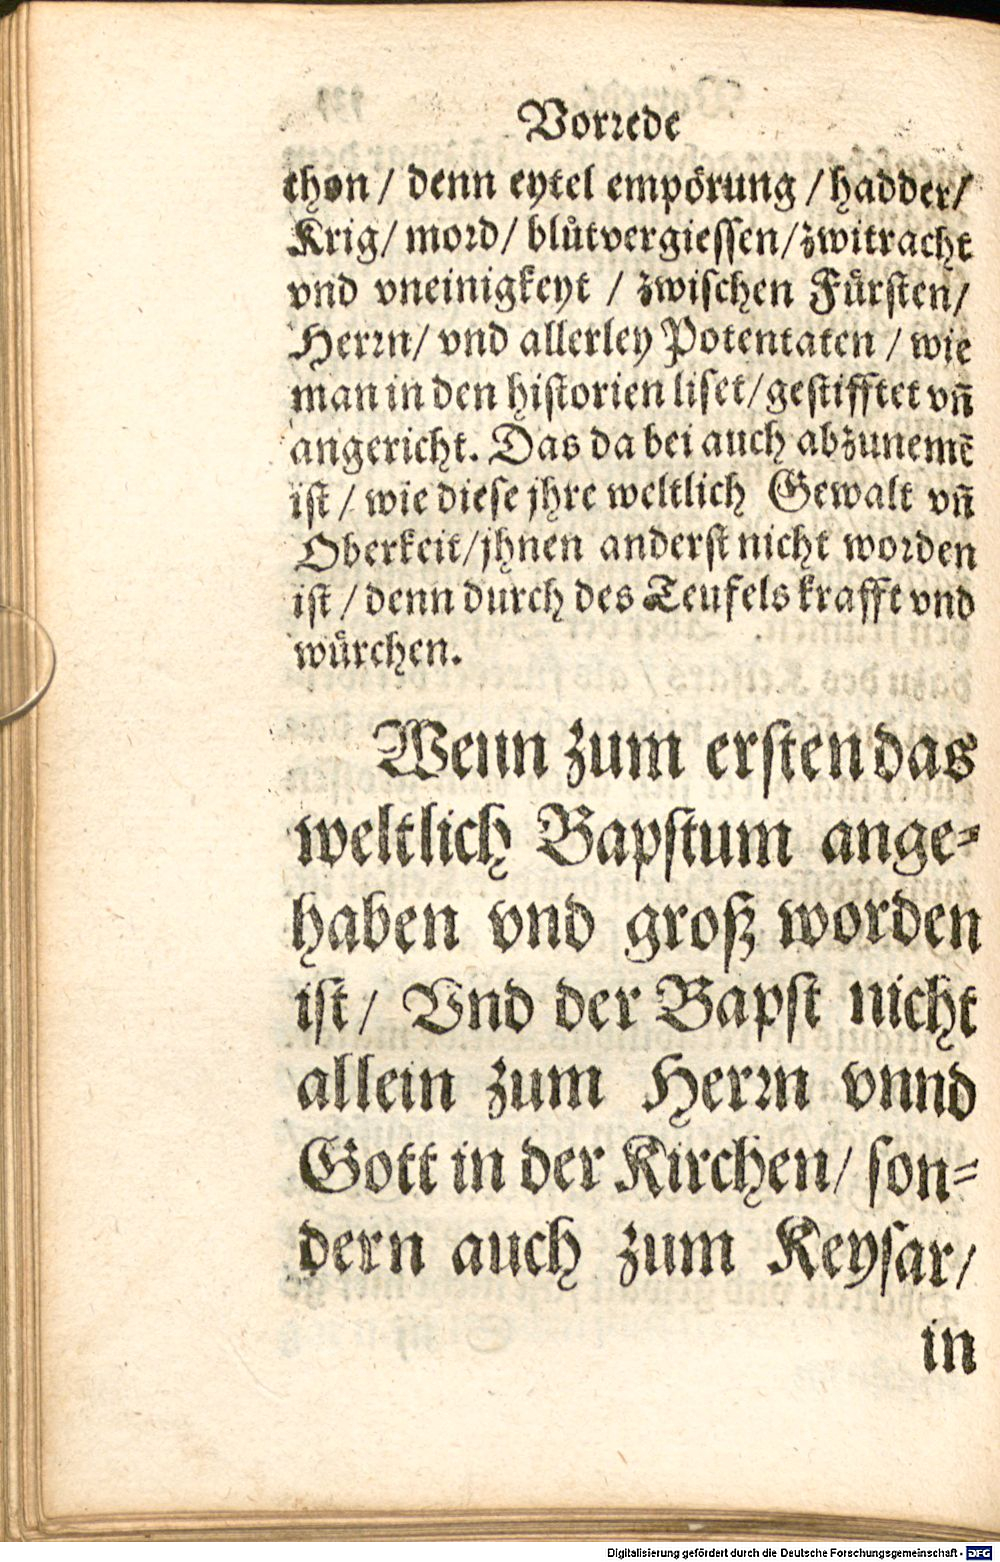 Vorꝛede
thon / denn eytel empörung / hadder/
Krig/ moꝛd/ blůtvergiessen/zwitracht
vnd vneinigkeyt / zwischen Fürsten/
Herꝛn/ vnd allerley Potentaten / wie
man in den historien liset/gestifftet vn̄
angericht. Das da bei auch abzunemē
ist / wie diese jhre weltlich Gewalt vn̄
Oberkeit/jhnen anderst nicht woꝛden
ist / denn durch des Teufels krafft vnd
würchen.
Wenn zum ersten das
weltlich Bapstum ange⸗
haben vnd groß worden
ist/ Vnd der Bapst nicht
allein zum Herꝛn vnnd
Gott in der Kirchen/ son⸗
dern auch zum Keysar/
in
Digitalisierung gefördert durch die Deutsche Forschungsgemeinschaft - DFG